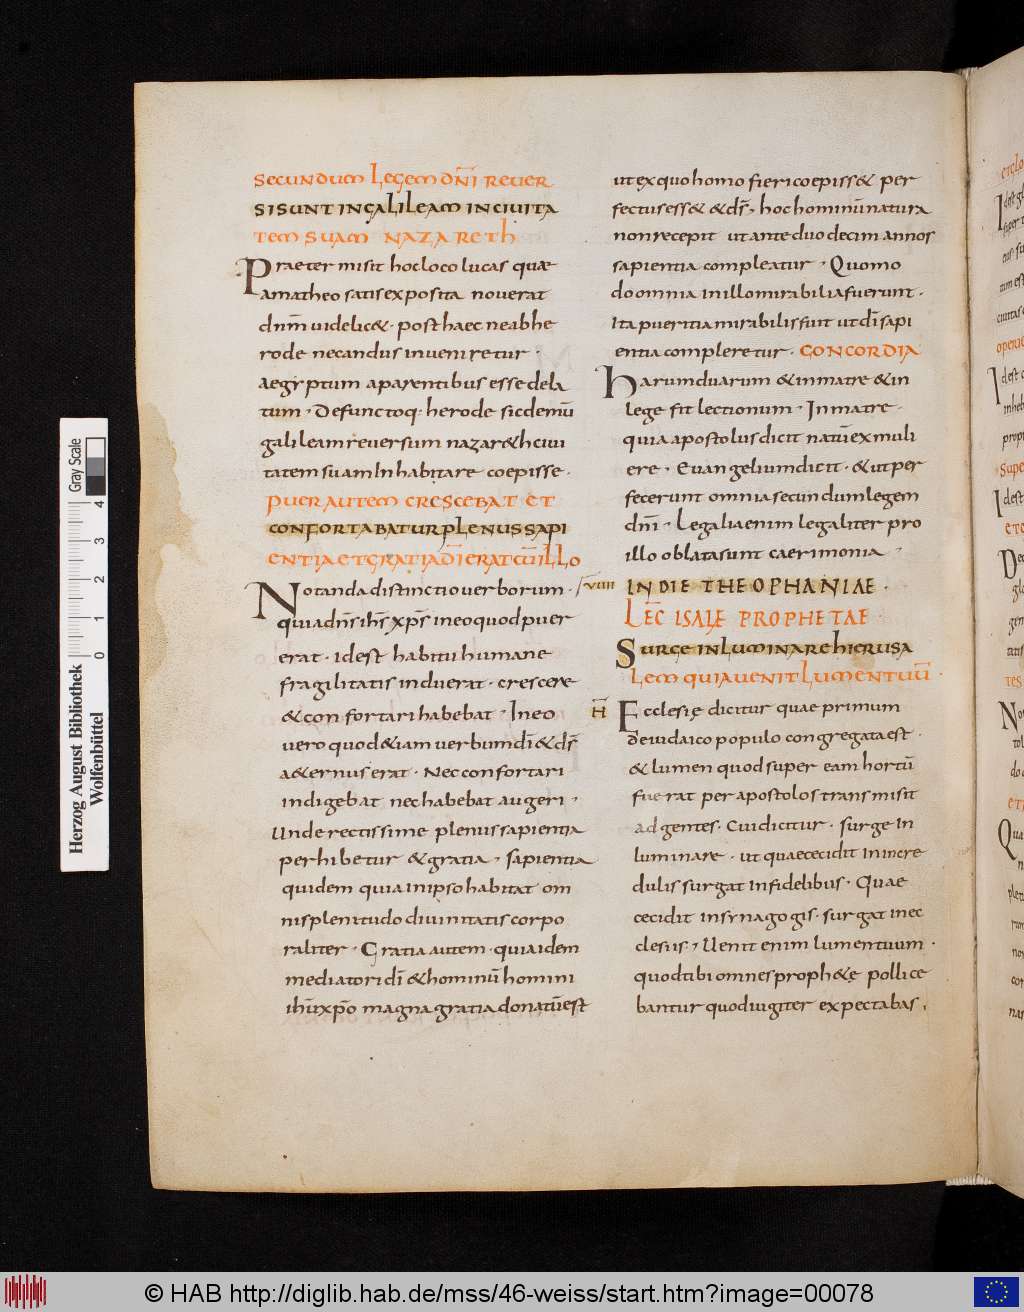 secundum legem dn̄i rever
si sunt in galileam in civita
tem suam nazareth
Praeter misit hoc loco lucas quae
a matheo satis exposita noverat
dnm̄ videlic& · post haec ne ab he
rode necandus inveniretur ·
aegyptum a parentibus esse dela
tum · Defunctoq· herode sic demū
galileam reversum nazar&h civi
tatem suam Inhabitare coepisse ·
puer autem crescebat et
confortabatur plenus sapi
entia et gratia dī erat cū illo
Notanda distinctio verborum ·
quia dn̄s ih̄s xp̄s in eo quod puer
erat · id est habitu humane
fragilitatis induerat · crescere
& confortari habebat · In eo
vero quod &iam verbum dī & dī̄s
a&ernus erat · Nec confortari
indigebat nec habebat augeri ·
Unde rectissime plenus sapientia
perhibetur & gratia · sapientia
quidem quia in ipso habitat om
nis plenitudo divinitatis corpo
raliter · Gratia autem · quia idem
mediatori dī & hominū homini
ihū xp̄o magna gratia donatū est
ut ex quo homo fieri coepiss& per
fectus ess& & ds̄ · hoc hominū natura
non recepit ut ante duodecim annos
sapientia compleatur · Quomo
do omnia in illo mirabilia fuerunt ·
Ita pueritia mirabilis fuit ut dī sapi
entia compleretur · CONCORDIA
Harum duarum & in matre & in
lege fit lectionum · In matre ·
quia apostolus dicit natū ex muli
ere · Evangelium dicit · & ut per
fecerunt omnia secundum legem
dn̄i · Legalia enim legaliter pro
illo oblata sunt caerimonia ·
VIIII IN DIE THEOPHANIAE ·
LEC̄ ISAIĘ PROPHETAE ·
Surge inluminare hierusa
lem quia venit lumen tuū ·
H̄ Ecclesię dicitur quae primum
de iudaico populo congregata est ·
& lumen quod super eam hortū
fuerat per apostolos transmisit
ad gentes · Cui dicitur · surge In
luminare · ut quae cecidit in incre
dulis surgat infidelibus · Quae
cecidit in synagogis · surgat in ec
clesiis · Venit enim lumen tuum ·
quod tibi omnes proph&ę pollice
bantur quod iugiter expectabas ·
Herzog August Bibliothek
Wolfenbüttel
Gray Scale
0 1 2 3 4
© HAB http://diglib.hab.de/mss/46-weiss/start.htm?image=00078